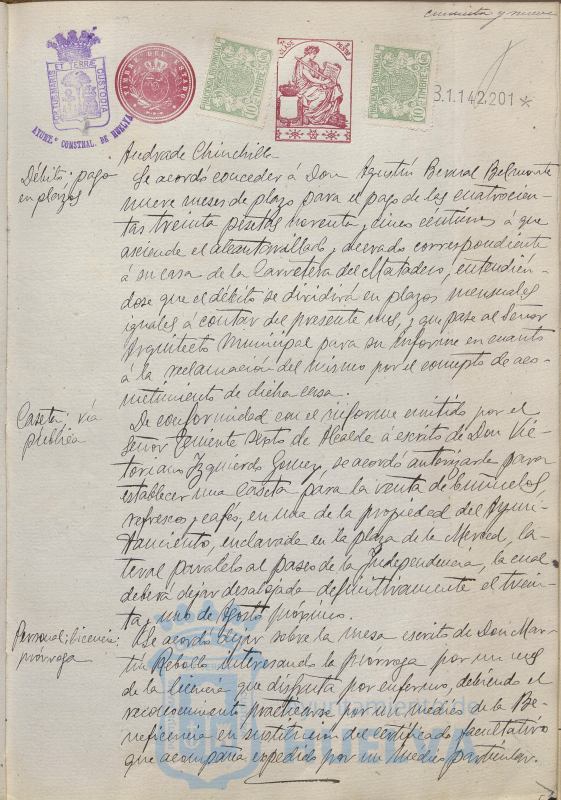 cincuenta y nueve
PORTUS MARIS ET TERRÆ CUSTODIA
AYUNT.º CONSTNAL. DE HUELVA
TIMBRE DEL ESTADO
1ª CLASE
3.1.142.201*
Andrade Chinchilla
Débito; pago
en plazos
Se acordó conceder á Don Agustín Bernal Belmonte
nueve meses de plazo para el pago de las cuatrocien-
tas treinta pesetas noventa y cinco céntimos á que
asciende el alcantarillado y acerado correspondiente
á su casa de la Carretera del Matadero, entendién-
dose que el débito se dividirá en plazos mensuales
iguales á contar del presente mes, y que pase al Señor
Arquitecto Municipal para su informe en cuanto
á la reclamación del mismo por el concepto de aco-
metimiento de dicha casa.
Caseta; vía
pública
De conformidad con el informe emitido por el
Señor Teniente Sexto de Alcalde á escrito de Don Vic-
toriano Izquierdo Gomez, se acordó autorizarle para
establecer una caseta para la venta de buñuelos
refrescos y cafés, en una de la propiedad del Ayun-
tamiento, enclavada en la plaza de la Merced, la-
teral paralelo al paseo de la Independencia, la cual
deberá dejar desalojada definitivamente el trein-
ta y uno de Agosto próximo.
Personal; licencia;
prórroga
Se acordó dejar sobre la mesa escrito de Don Mar-
tín Rebollo interesando la prórroga por un mes
de la licencia que disfruta por enfermo, debiendo el
reconocimiento practicarse por un médico de la Be-
neficencia en sustitución del certificado facultativo
que acompaña expedido por un médico particular.
Ayuntamiento de
HUELVA